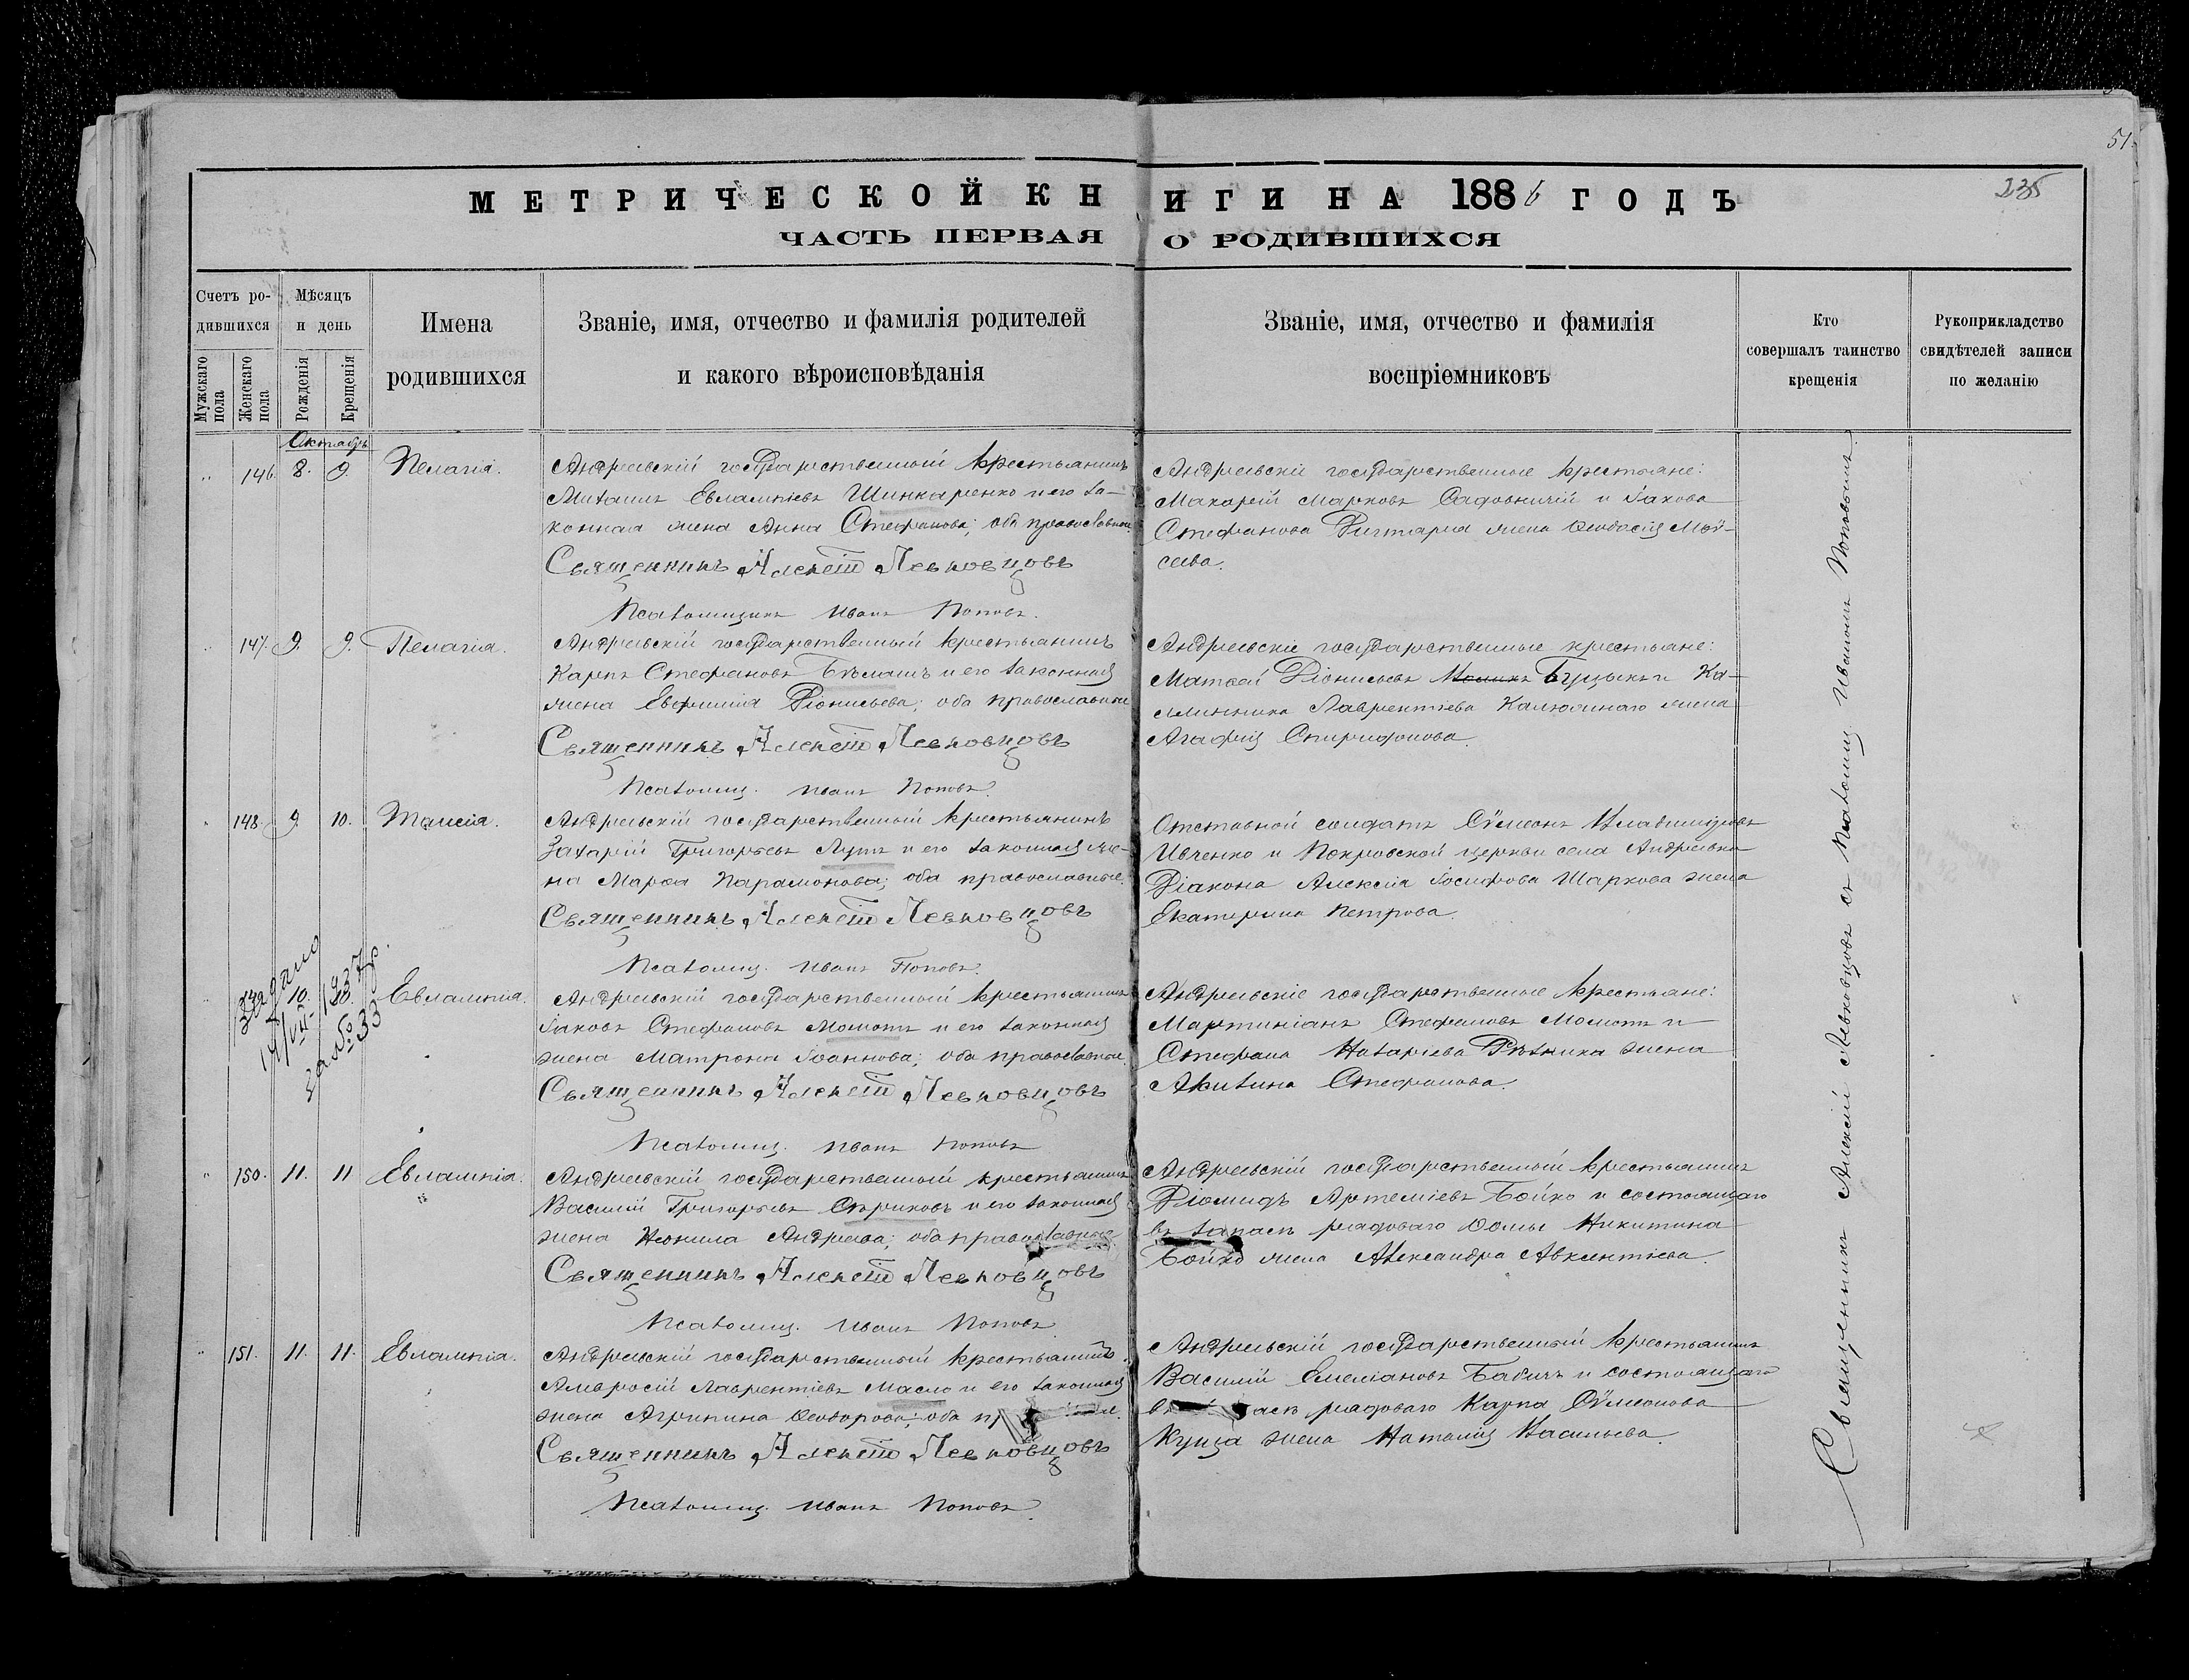 51.
МЕТРИЧЕСКОЙ КНИГИ НА 1886 ГОДЪ
235
ЧАСТЬ ПЕРВАЯ О РОДИВШИХСЯ
Счетъ родившихся
Мужскаго пола
Женскаго пола
Мѣсяцъ и день
Рожденія
Крещенія
Имена родившихся
Званіе, имя, отчество и фамилія родителей
и какого вѣроисповѣданія
Званіе, имя, отчество и фамилія
воспріемниковъ
Кто
совершалъ таинство
крещенія
Рукоприкладство
свидѣтелей записи
по желанію
Октябрь
146. 8. 9. Пелагія.
Андреевскій государственный крестьянинъ
Михаилъ Евлампіевъ Шинкаренко и его за-
конная жена Анна Стефанова; оба православные.
Священникъ Алексій Левковцовъ
Псаломщикъ Иванъ Поповъ.
Андреевскіе государственные крестьяне:
Макарій Марковъ Садовничій и Іакова
Стефанова жена Ѳеодосія Мой-
сеева.
147. 9. 9. Пелагія.
Андреевскій государственный крестьянинъ
Карпъ Стефановъ Бѣлашъ и его законная
жена Евфимія Діонисьева; оба православные
Священникъ Алексій Левковцовъ
Псаломщ. Иванъ Поповъ.
Андреевскіе государственные крестьяне:
Матвей Діонисьевъ Буцыкъ и Ка-
Лаврентіева жена
Агафія Спиридонова.
148. 9. 10. Таисія.
Андреевскій государственный крестьянинъ
Захарій Григорьевъ и его законная же-
на Марѳа Парамонова; оба православные.
Священникъ Алексій Левковцовъ
Псаломщ. Иванъ Поповъ.
Отставной солдатъ Сѵмеонъ Владиміровъ
Ивченко и Покровской церкви села Андреевки
Діакона Алексія Іосифова Шаркова жена
Екатерина Петрова.
10. 10. Евлампія.
Выдано
14/VII-1937 р.
за № 33
Андреевскій государственный крестьянинъ
Іаковъ Стефановъ Момотъ и его законная
жена Матрона Іоаннова; оба православные.
Священникъ Алексій Левковцовъ
Псаломщ. Иванъ Поповъ
Андреевскіе государственные крестьяне:
Мартиніанъ Стефановъ Момотъ и
Стефана Назаріева Рѣзника жена
Акилина Стефанова.
150. 11. 11 Евлампія.
Андреевскій государственный крестьянинъ
Василій Григорьевъ Сѣриковъ и его законная
жена Неонила Андреева; оба православные
Священникъ Алексій Левковцовъ
Псаломщ. Иванъ Поповъ
Андреевскій государственный крестьянинъ
Діомидъ Артеміевъ Бойко и состоящаго
въ запасѣ рядоваго Ѳомы Никитина
Бойко жена Александра Авксентіева.
151. 11. 11. Евлампія.
Андреевскій государственный крестьянинъ
Амвросій Лаврентіевъ Масло и его законная
жена Агрипина Ѳеодорова; оба
Священникъ Алексій Левковцовъ
Псаломщ. Иванъ Поповъ.
Андреевскій государственный крестьянинъ
Василій Емеліановъ Бабичъ и состоящаго
рядоваго Карпа Сѵмеонова
Куща жена Наталія Васильева.
Священникъ Алексій Левковцовъ съ псаломщ. Иваномъ Поповымъ.